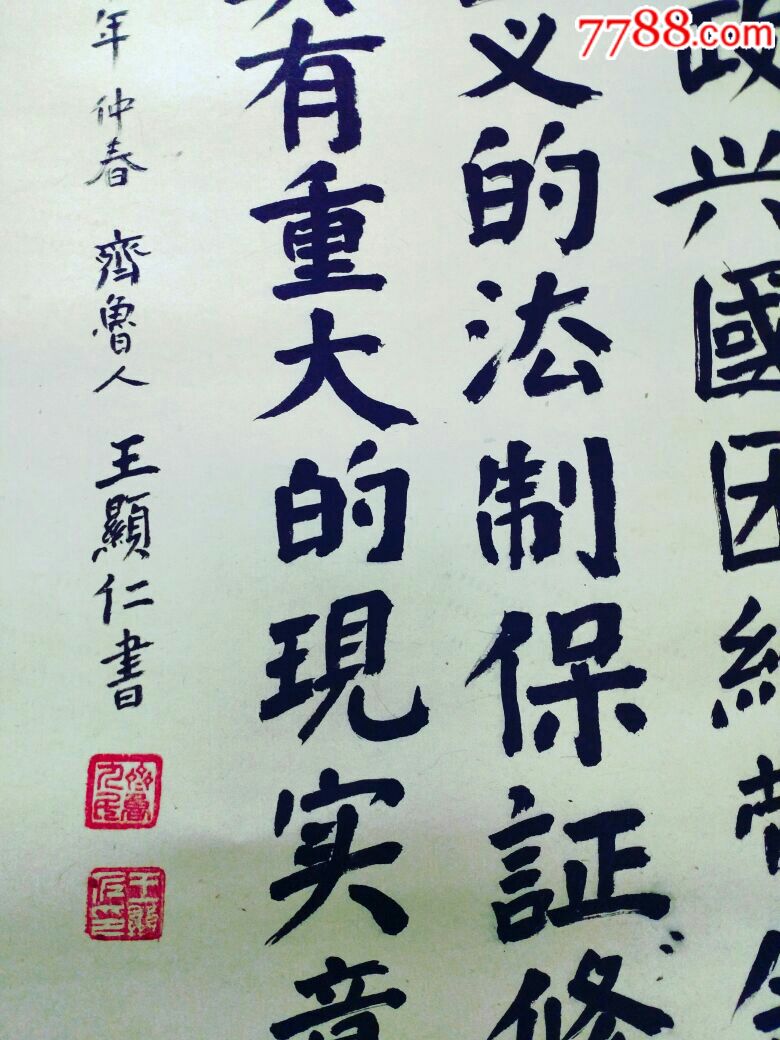 7788.com
政兴國因經
义的法制保証修
具有重大的現实意
年仲春 齊魯人 王顯仁書